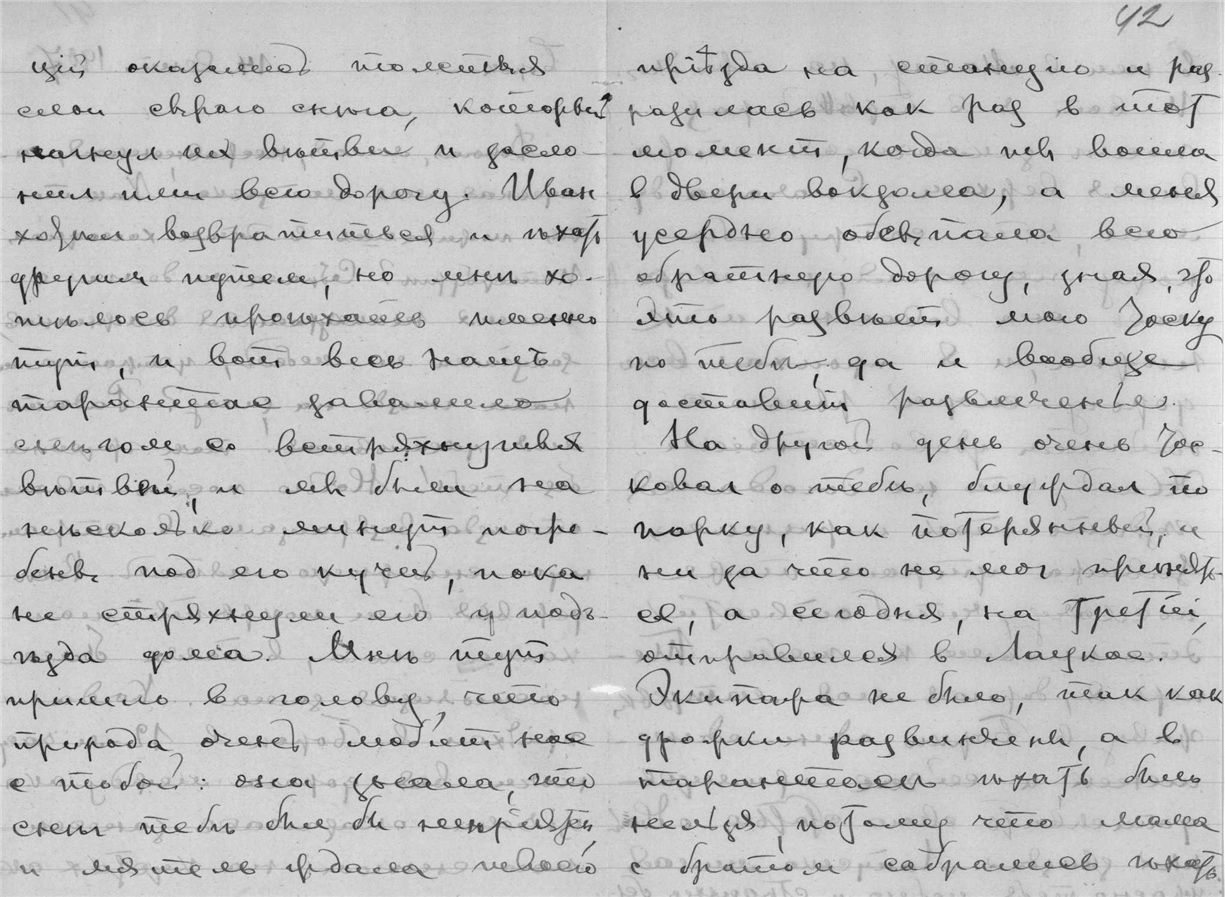 42
ціи оказались толстыя
слои сѣраго снѣга, который
нагнул их вѣтви и засло-
нил ими всю дорогу. Иван
хотѣл возвратиться и ѣхать
другим путем, но мнѣ хо-
тѣлось проѣхать именно
тут, и вот весь наш
тарантас завалило
снѣгом со встряхнувшихся
вѣтвей, и мы были на
нѣсколько минут погре-
бены под его кучей, пока
не стряхнули его у подъ-
ѣзда дома. Мнѣ тут
пришло в голову, что
природа очень любит нас
с тобой: она знала, что
снѣг тебѣ был бы непріятен,
и мятель ждала твоего
пріѣзда на станцію и раз-
разилась как раз в тот
момент, когда ты вошла
в двери вокзала, а меня
усердно обсыпала всю
обратную дорогу, зная, что
это развѣет мою тоску
по тебѣ, да и вообще
доставит развлеченье.
На другой день очень тос-
ковал о тебѣ, блуждал по
парку, как потерянный, и
ни за что не мог принять-
ся, а сегодня, на третій,
отправился в Лацкое.
Экипажа не было, так как
дрожки развинчены, а в
тарантасѣ ѣхать было
нельзя, потому что мама
с братом собрались ѣхать